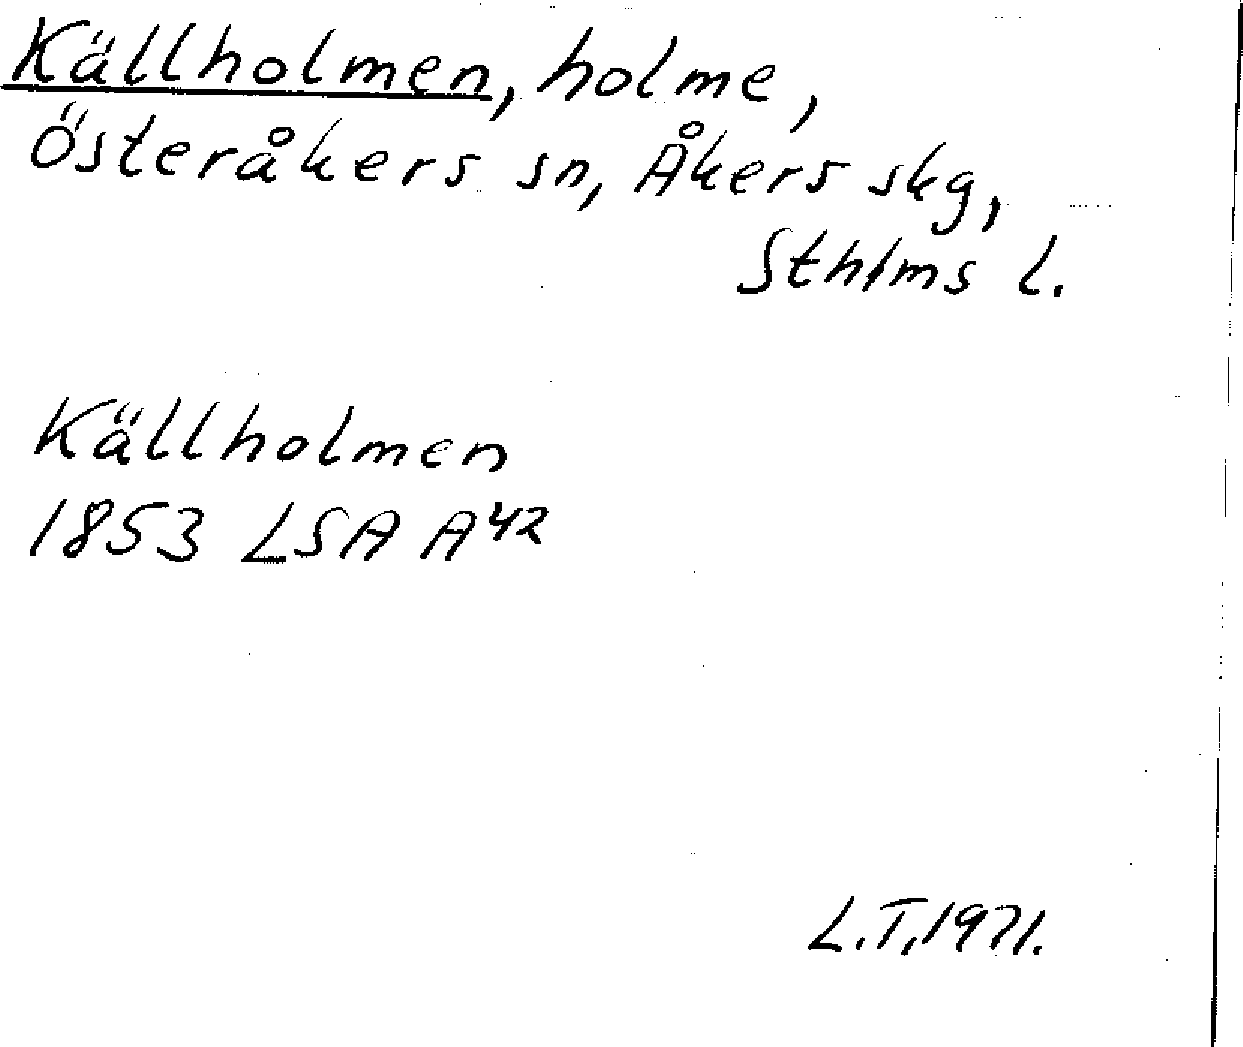 Källholmen, holme,
Österåkers sn, Åkers skg,
Sthlms l.
Källholmen
1853 LSA A42
L.T. 1971.